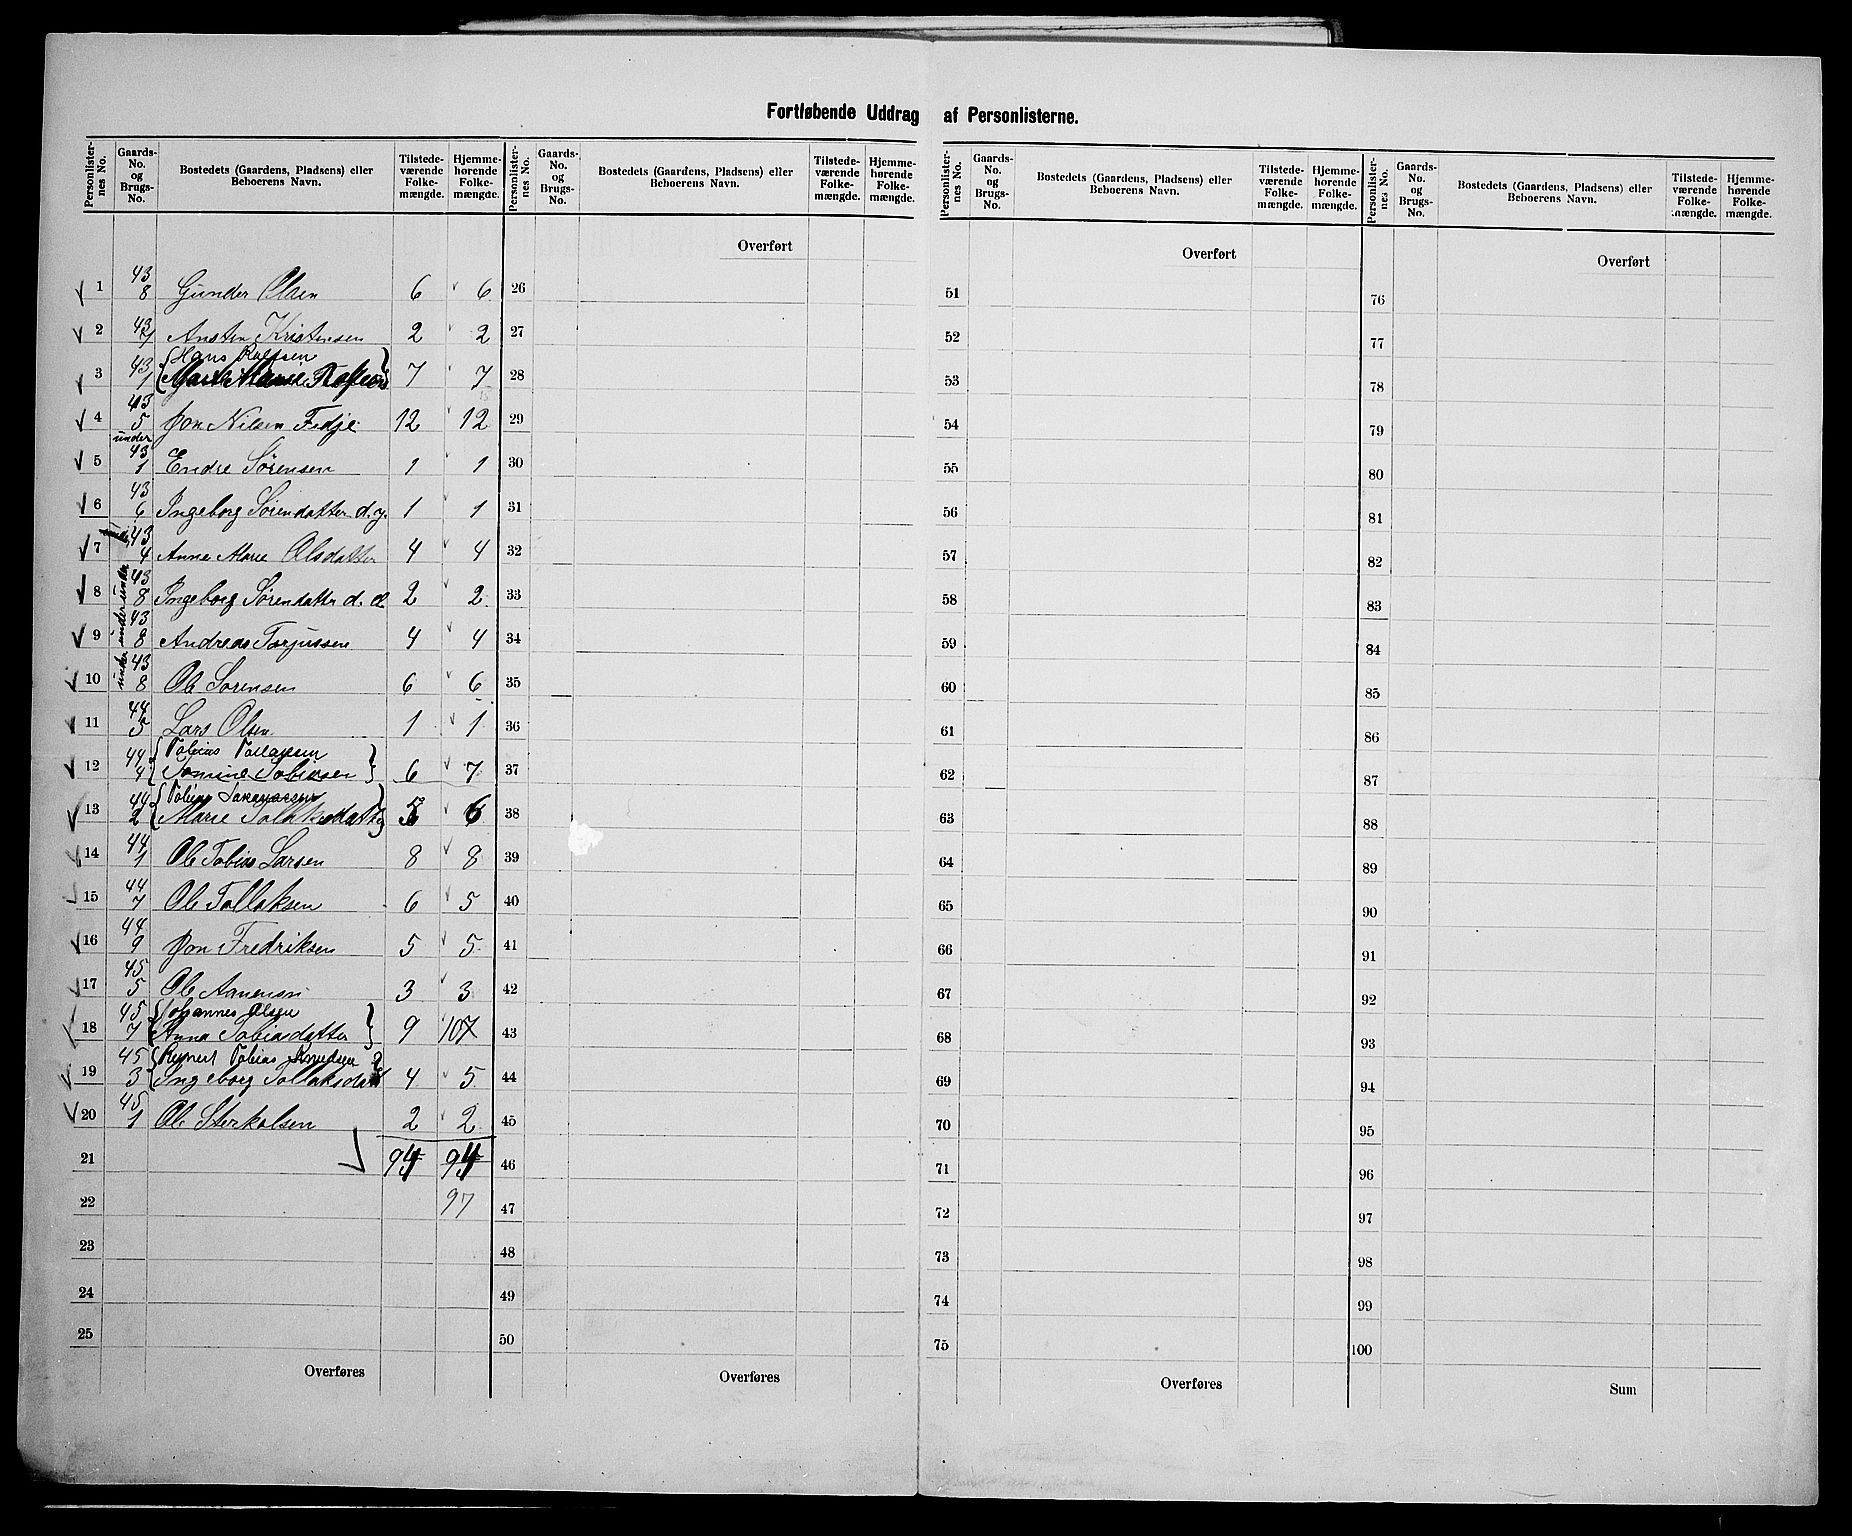 Fortløbende Uddrag af Personlisterne.
Personlister-nes No. Gaards-No. og Brugs-No. Bostedets (Gaardens, Pladsens) eller Beboerens Navn. Tilstede-værende Folke-mængde. Hjemme-hørende Folke-mængde.
Personlister-nes No. Gaards-No. og Brugs-No. Bostedets (Gaardens, Pladsens) eller Beboerens Navn. Tilstede-værende Folke-mængde. Hjemme-hørende Folke-mængde.
Personlister-nes No. Gaards-No. og Brugs-No. Bostedets (Gaardens, Pladsens) eller Beboerens Navn. Tilstede-værende Folke-mængde. Hjemme-hørende Folke-mængde.
Personlister-nes No. Gaards-No. og Brugs-No. Bostedets (Gaardens, Pladsens) eller Beboerens Navn. Tilstede-værende Folke-mængde. Hjemme-hørende Folke-mængde.
Overført Overført Overført
1 43 8 Gunder Olsen 6 6 26 51 76
2 43 Ansten Kristensen 2 2 27 52 77
Hans Rolfsen
3 43 1 Marie 7 7 28 53 78
4 43 5 Jon Nilsen Fedje 12 12 29 54 79
under
5 43 1 Endre Sørensen 1 1 30 55 80
6 43 6 Ingeborg Sørendatter d.y. 1 1 31 56 81
7 43 4 Anne Marie Olsdatter 4 4 32 57 82
8 under 43 8 Ingeborg Sørendatter d. 2 2 33 58 83
9 under 43 8 Andreas Torjussen 4 4 34 59 84
10 under 43 8 Ole Sørensen 6 6 35 60 85
11 44 5 Lars Olsen 1 1 36 61 86
Tobias Tollaksen
12 44 4 Tomine Tobiasen 6 7 37 62 87
Tobias
13 44 2 Marie Tollaksdatter 5 6 38 63 88
14 44 1 Ole Tobias Larsen 8 8 39 64 89
15 44 7 Ole Tollaksen 6 5 40 65 90
16 44 9 Jon Fredriksen 5 5 41 66 91
17 45 5 Ole Aanensen 3 3 42 67 92
Johannes Olsen
18 45 7 Anna Tobiasdatter 9 107 43 68 93
Reinert Tobias Knudsen
19 45 3 Ingeborg Tollaksdatt 4 5 44 69 94
20 45 1 Ole Sterkolsen 2 2 45 70 95
21 94 94 46 71 96
22 97 47 72 97
23 48 73 98
24 49 74 99
25 50 75 100
Overføres Overføres Overføres Sum